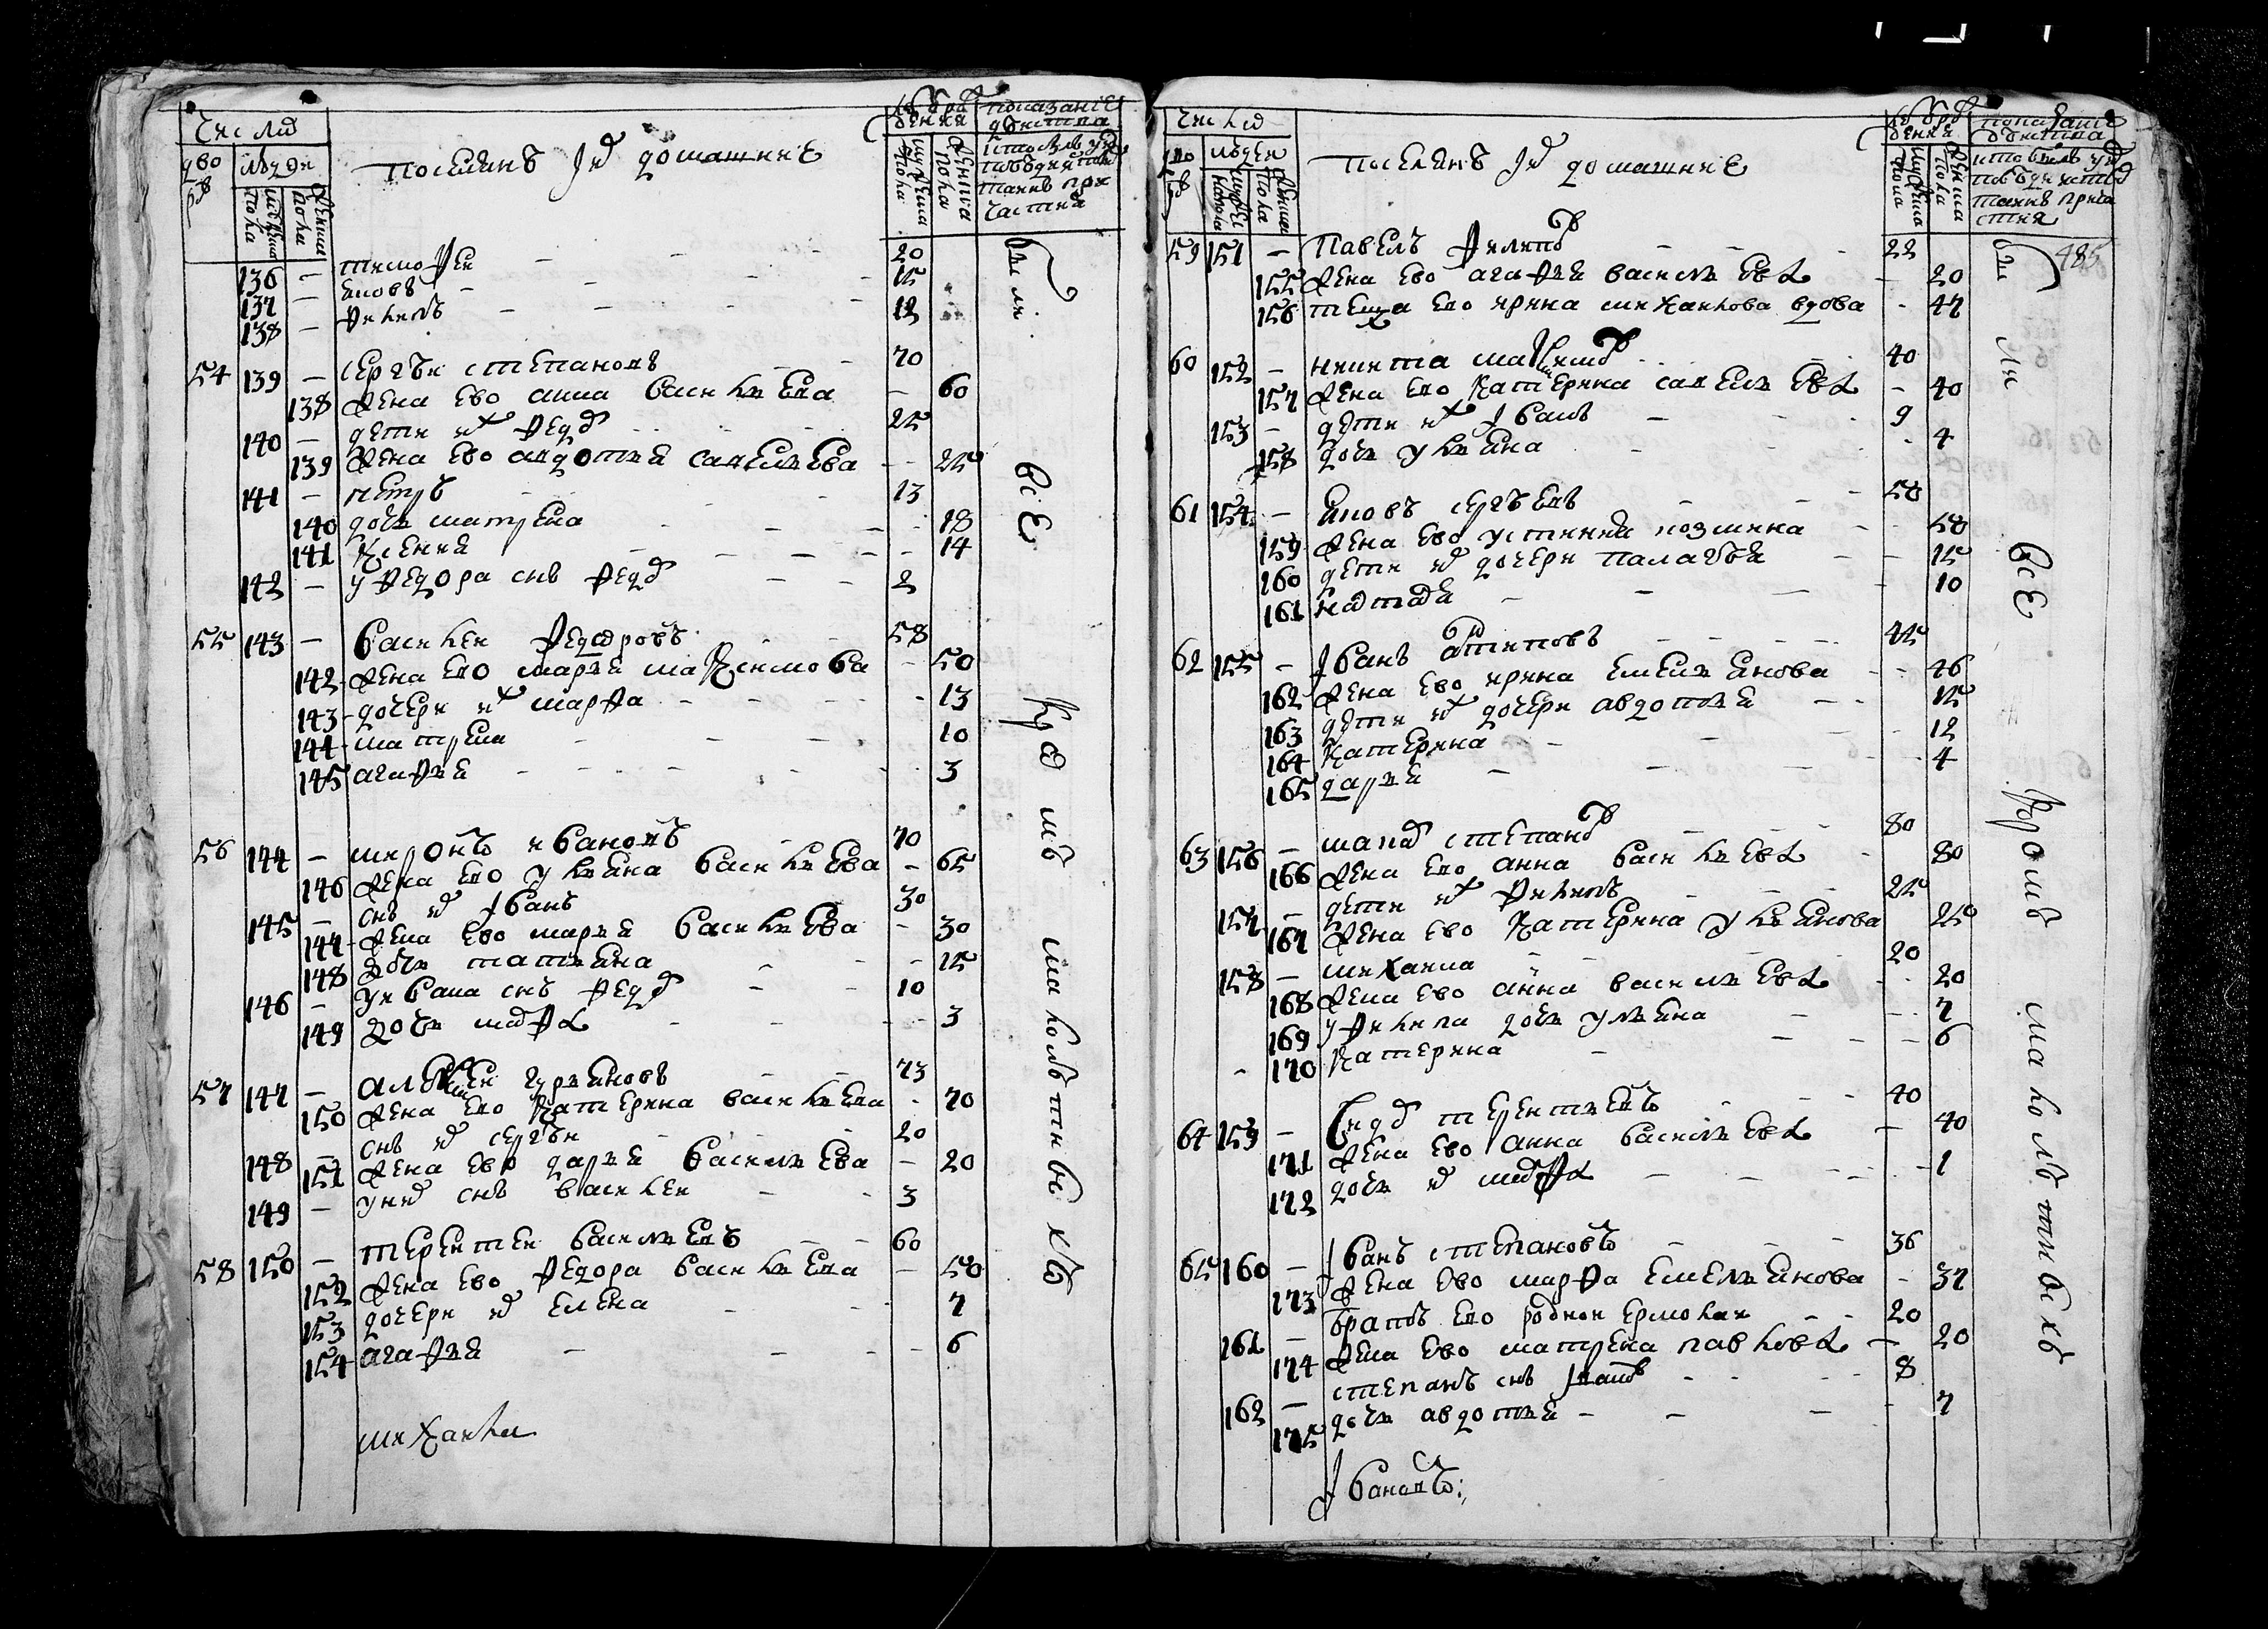 число
дво ра
людеи
мужеска пола
женска пола
посацкие их домашние
136 — тимофеи — 20
137 — яковъ — 15
138 — филипъ — 12
54 139 — сергѣи степановъ — 70
138 жена ево анна василиева — 60
140 — дети их федор 25
139 жена ево авдотия савелиева — 25
141 — петръ 13
140 дочь матрена — 18
141 ксения — 14
142 — у федора снъ федор — 2
55 143 — василеи федоровъ 58
142 жена ево марья максимова — 50
143 дочери их марфа — 13
144 матрена — 10
145 агафья — 3
56 144 — миронъ ивановъ — 70
146 жена ево ульяна василиева — 65
145 — снъ их иванъ 30
147 жена ево марья василиева — 30
148 дочь татьяна — 15
146 — у ивана снъ федор — 10
149 дочь марфа — 3
57 147 — алексеи гурьяновъ — 73
150 жена ево катерина василиева — 70
148 — снъ их сергѣи — 20
151 жена ево дарья василиева — 20
149 — у них снъ василеи — 3
58 150 — терентеи василиевъ — 60
152 жена ево федора василиева — 50
153 дочери их елена — 7
154 агафья — 6
михаила
все
кромѣ
малолѣтныхъ
число
людеи
мужеска пола
женска пола
485
59 151 — павелъ филипов — 22
155 жена ево агафья василиева — 20
156 теща ево ирина михаилова вдова — 47
60 152 — никита максимов 40
157 жена ево катерина савелиева — 40
153 — дети их иванъ — 9
158 дочь ульяна — 4
61 154 — яковъ сергѣевъ — 58
159 жена ево устиния козмина — 58
160 дети их дочери палагѣя — 15
161 — 10
62 155 — иванъ антиповъ — 45
162 жена ево ирина емельянова — 46
163 дети их дочери авдотья — 15
164 катерина — 12
165 дарья — 4
63 156 — степанов — 80
166 жена ево анна василиева — 80
157 — дети их филипъ — 25
167 жена ево катерина ульянова 25
158 — михаила — 20
168 жена ево анна василиева — 20
169 у филипа дочь ульяна — 7
170 катерина — 6
64 159 — терентьевъ — 40
171 жена ево анна василиева — 40
172 дочь их марфа — 1
65 160 — иванъ степановъ — 36
173 жена ево марфа емельянова — 37
161 — братъ ево роднои ермолаи — 20
174 жена ево матрена павлова — 20
162 — степанъ снъ иванов — 8
175 дочь авдотья — 7
ивановъ
все
кромѣ
малолѣтныхъ